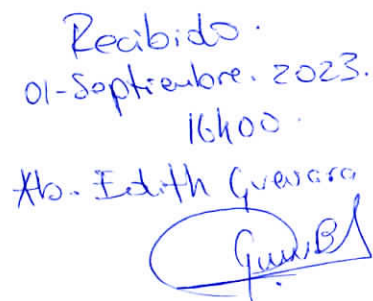 Recibido.
01-Septiembre. 2023.
16h00.
Ab. Edith Guevara